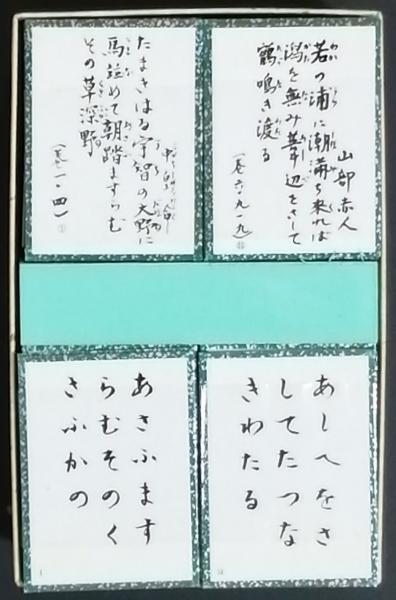 山部赤人
若の浦に潮満ち来れば
潟を無み葦辺をさして
鶴鳴き渡る
(巻六・九一九)
中皇命
たまきはる宇智の大野に
馬並めて朝踏ますらむ
その草深野
(巻一・四)
①
あしへをさ
してたつな
きわたる
あさふます
らむそのく
さふかの